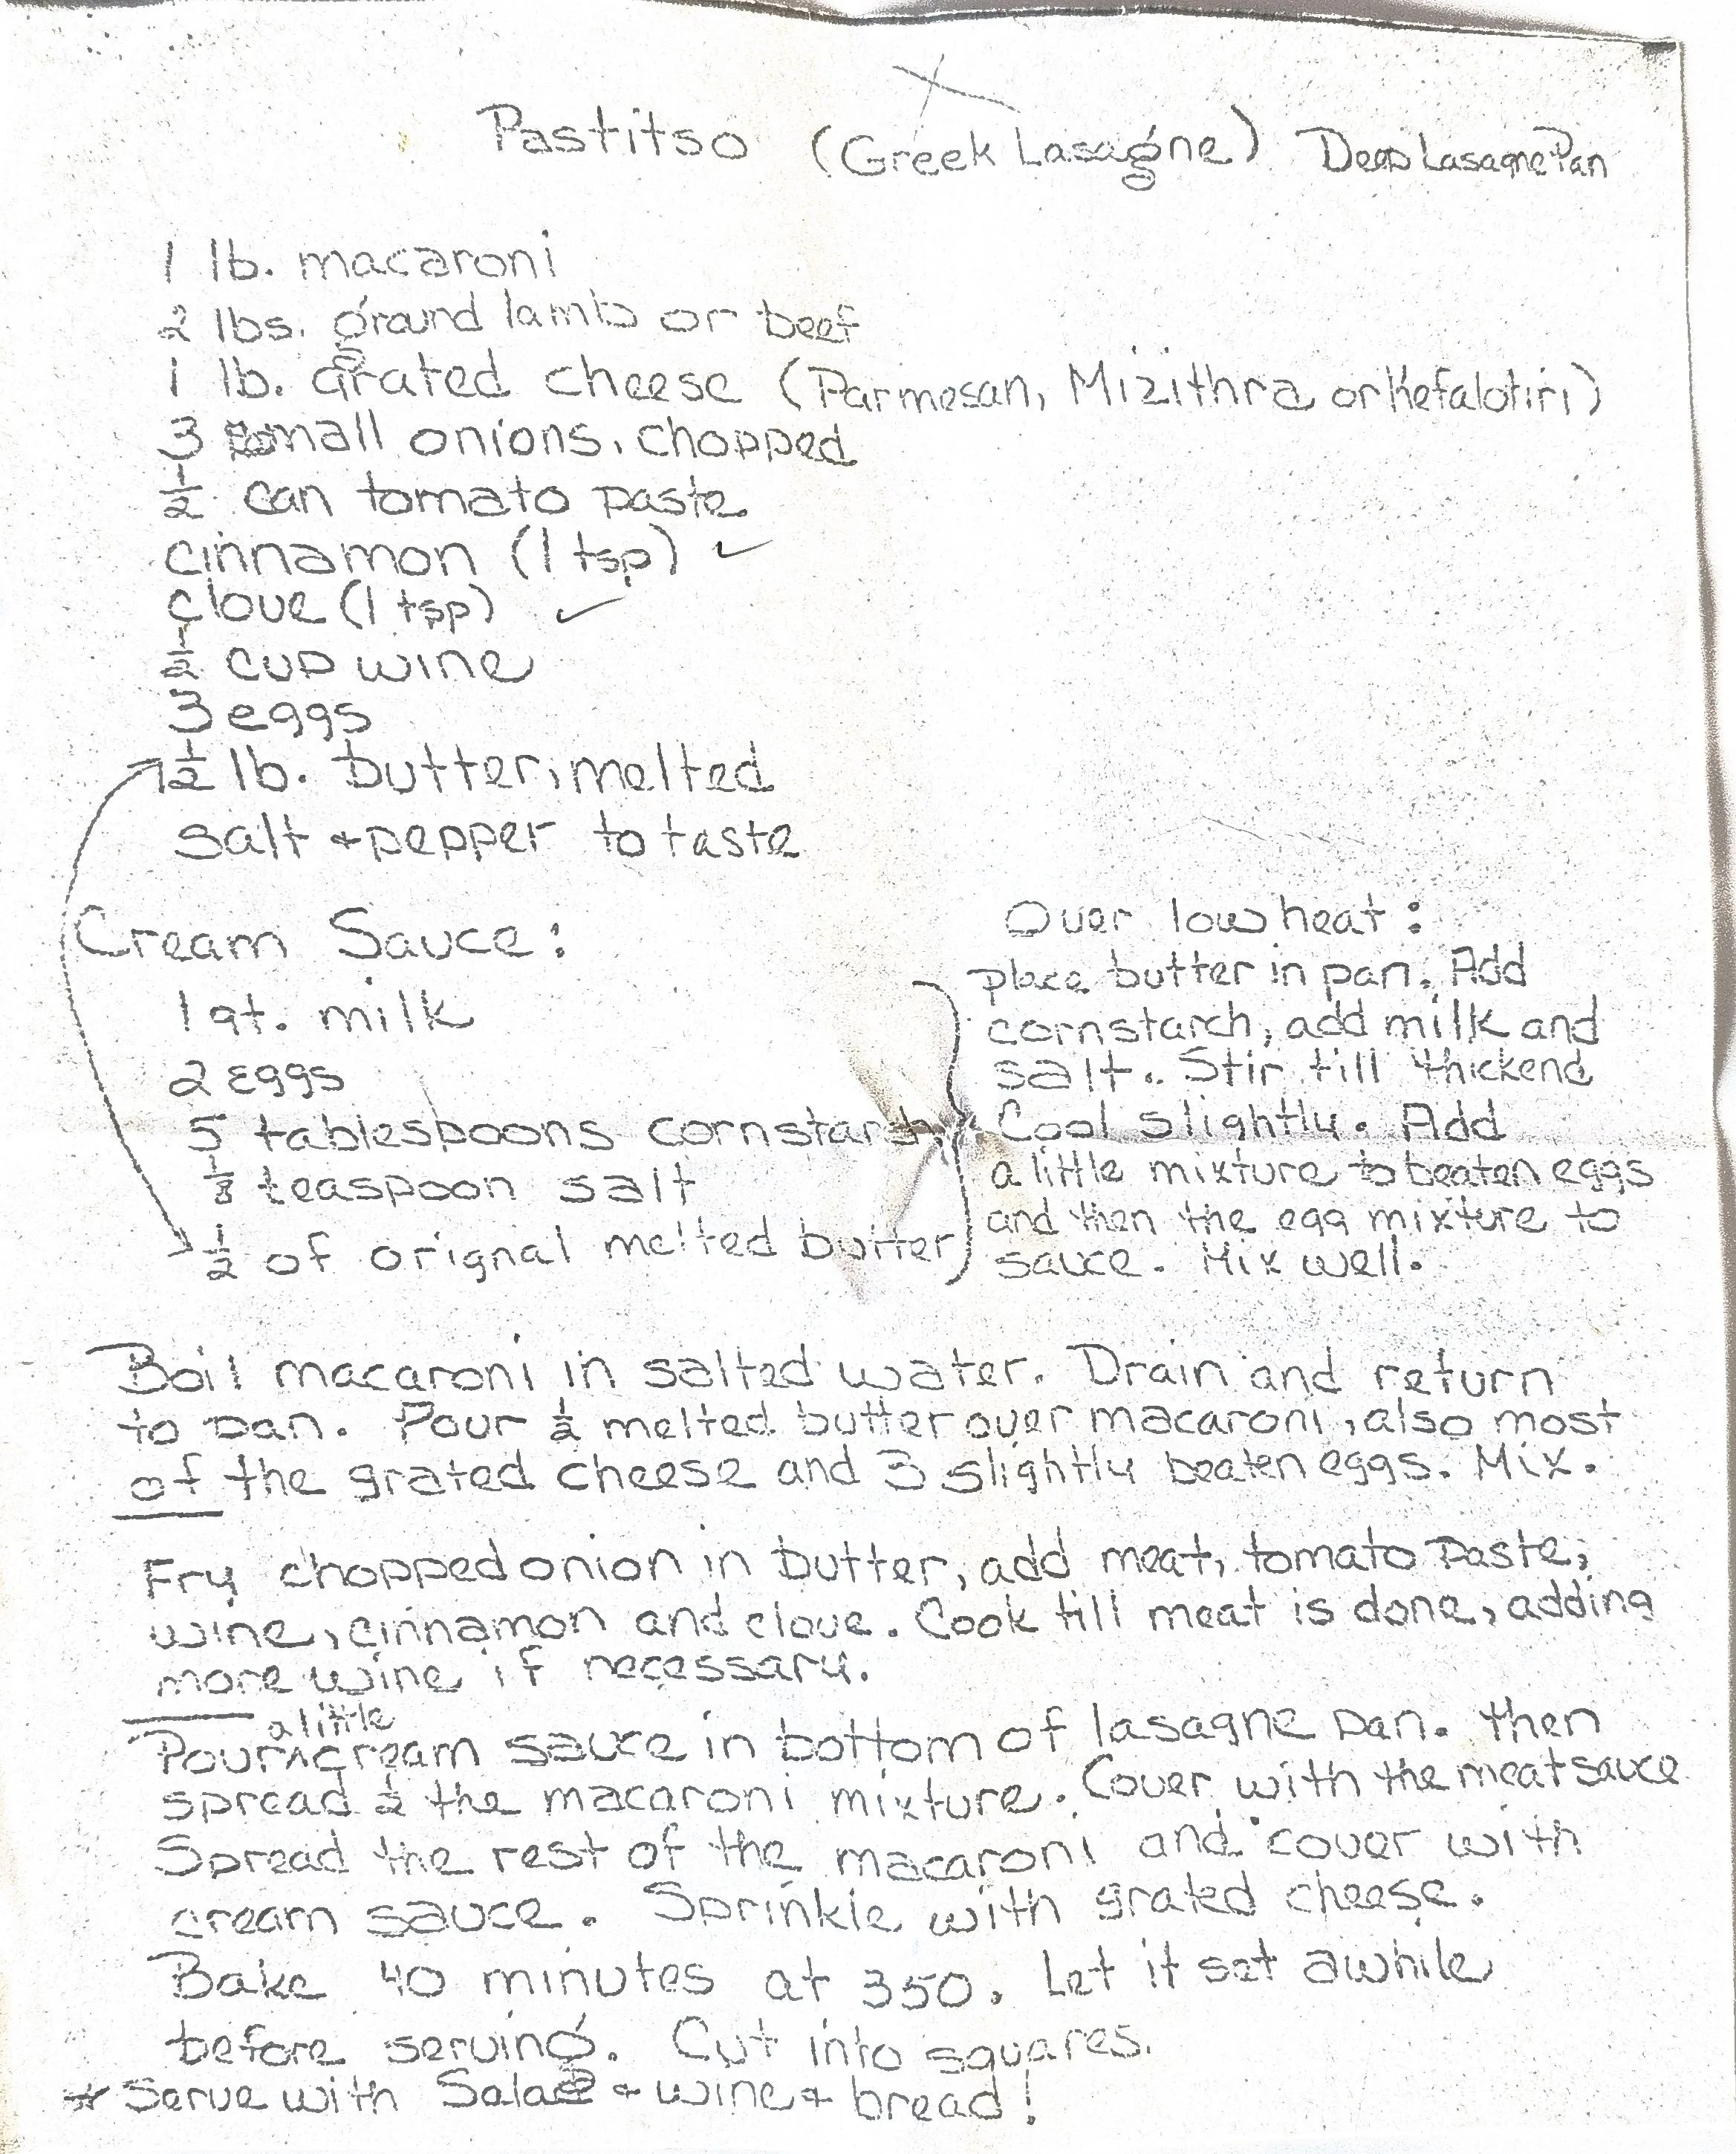 Pastitso (Greek Lasagne) Deep Lasagne Pan
1 lb. macaroni
2 lbs. ground lamb or beef
1 lb. grated cheese (Parmesan, Mizithra or Kefalotiri)
3 small onions, chopped
½ can tomato paste
cinnamon (1 tsp) ✓
clove (1 tsp) ✓
½ cup wine
3 eggs
½ lb. butter, melted
salt + pepper to taste
Cream Sauce:
1 qt. milk
2 eggs
5 tablespoons cornstarch
teaspoon salt
½ of orignal melted butter
Over low heat:
place butter in pan. Add
cornstarch, add milk and
salt. Stir till thickend
Cool slightly. Add
a little mixture to beaten eggs
and then the egg mixture to
sauce. Mix well.
Boil macaroni in salted water. Drain and return
to pan. Pour ½ melted butter over macaroni, also most
of the grated cheese and 3 slightly beaten eggs. Mix.
Fry chopped onion in butter, add meat, tomato paste,
wine, cinnamon and clove. Cook till meat is done, adding
more wine if necessary.
a little
Pour ^ cream sauce in bottom of lasagne pan. Then
spread ½ the macaroni mixture. Cover with the meat sauce
Spread the rest of the macaroni and cover with
cream sauce. Sprinkle with grated cheese.
Bake 40 minutes at 350. Let it set awhile
before serving. Cut into squares.
* Serve with Salad + wine + bread!